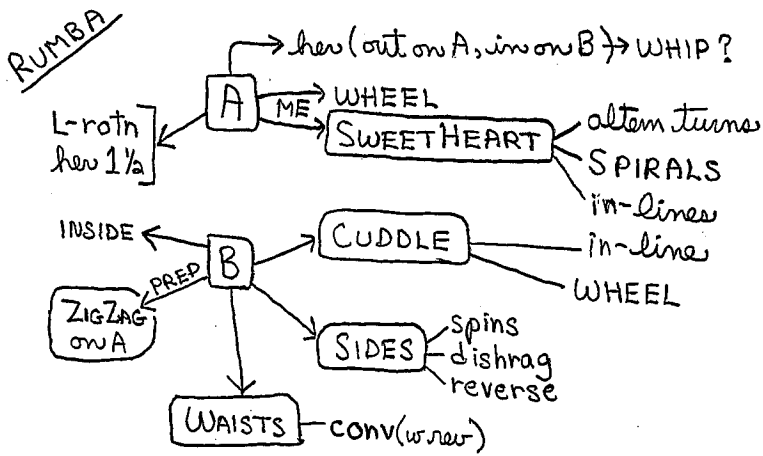 RUMBA
her (out on A, in on B) → WHIP?
A
ME
WHEEL
SWEETHEART
altern turns
SPIRALS
in-lines
L-rotn
her 1½
INSIDE
B
CUDDLE
in-line
WHEEL
PREP
ZIGZAG
on A
SIDES
spins
dishrag
reverse
WAISTS
conv (w rev)